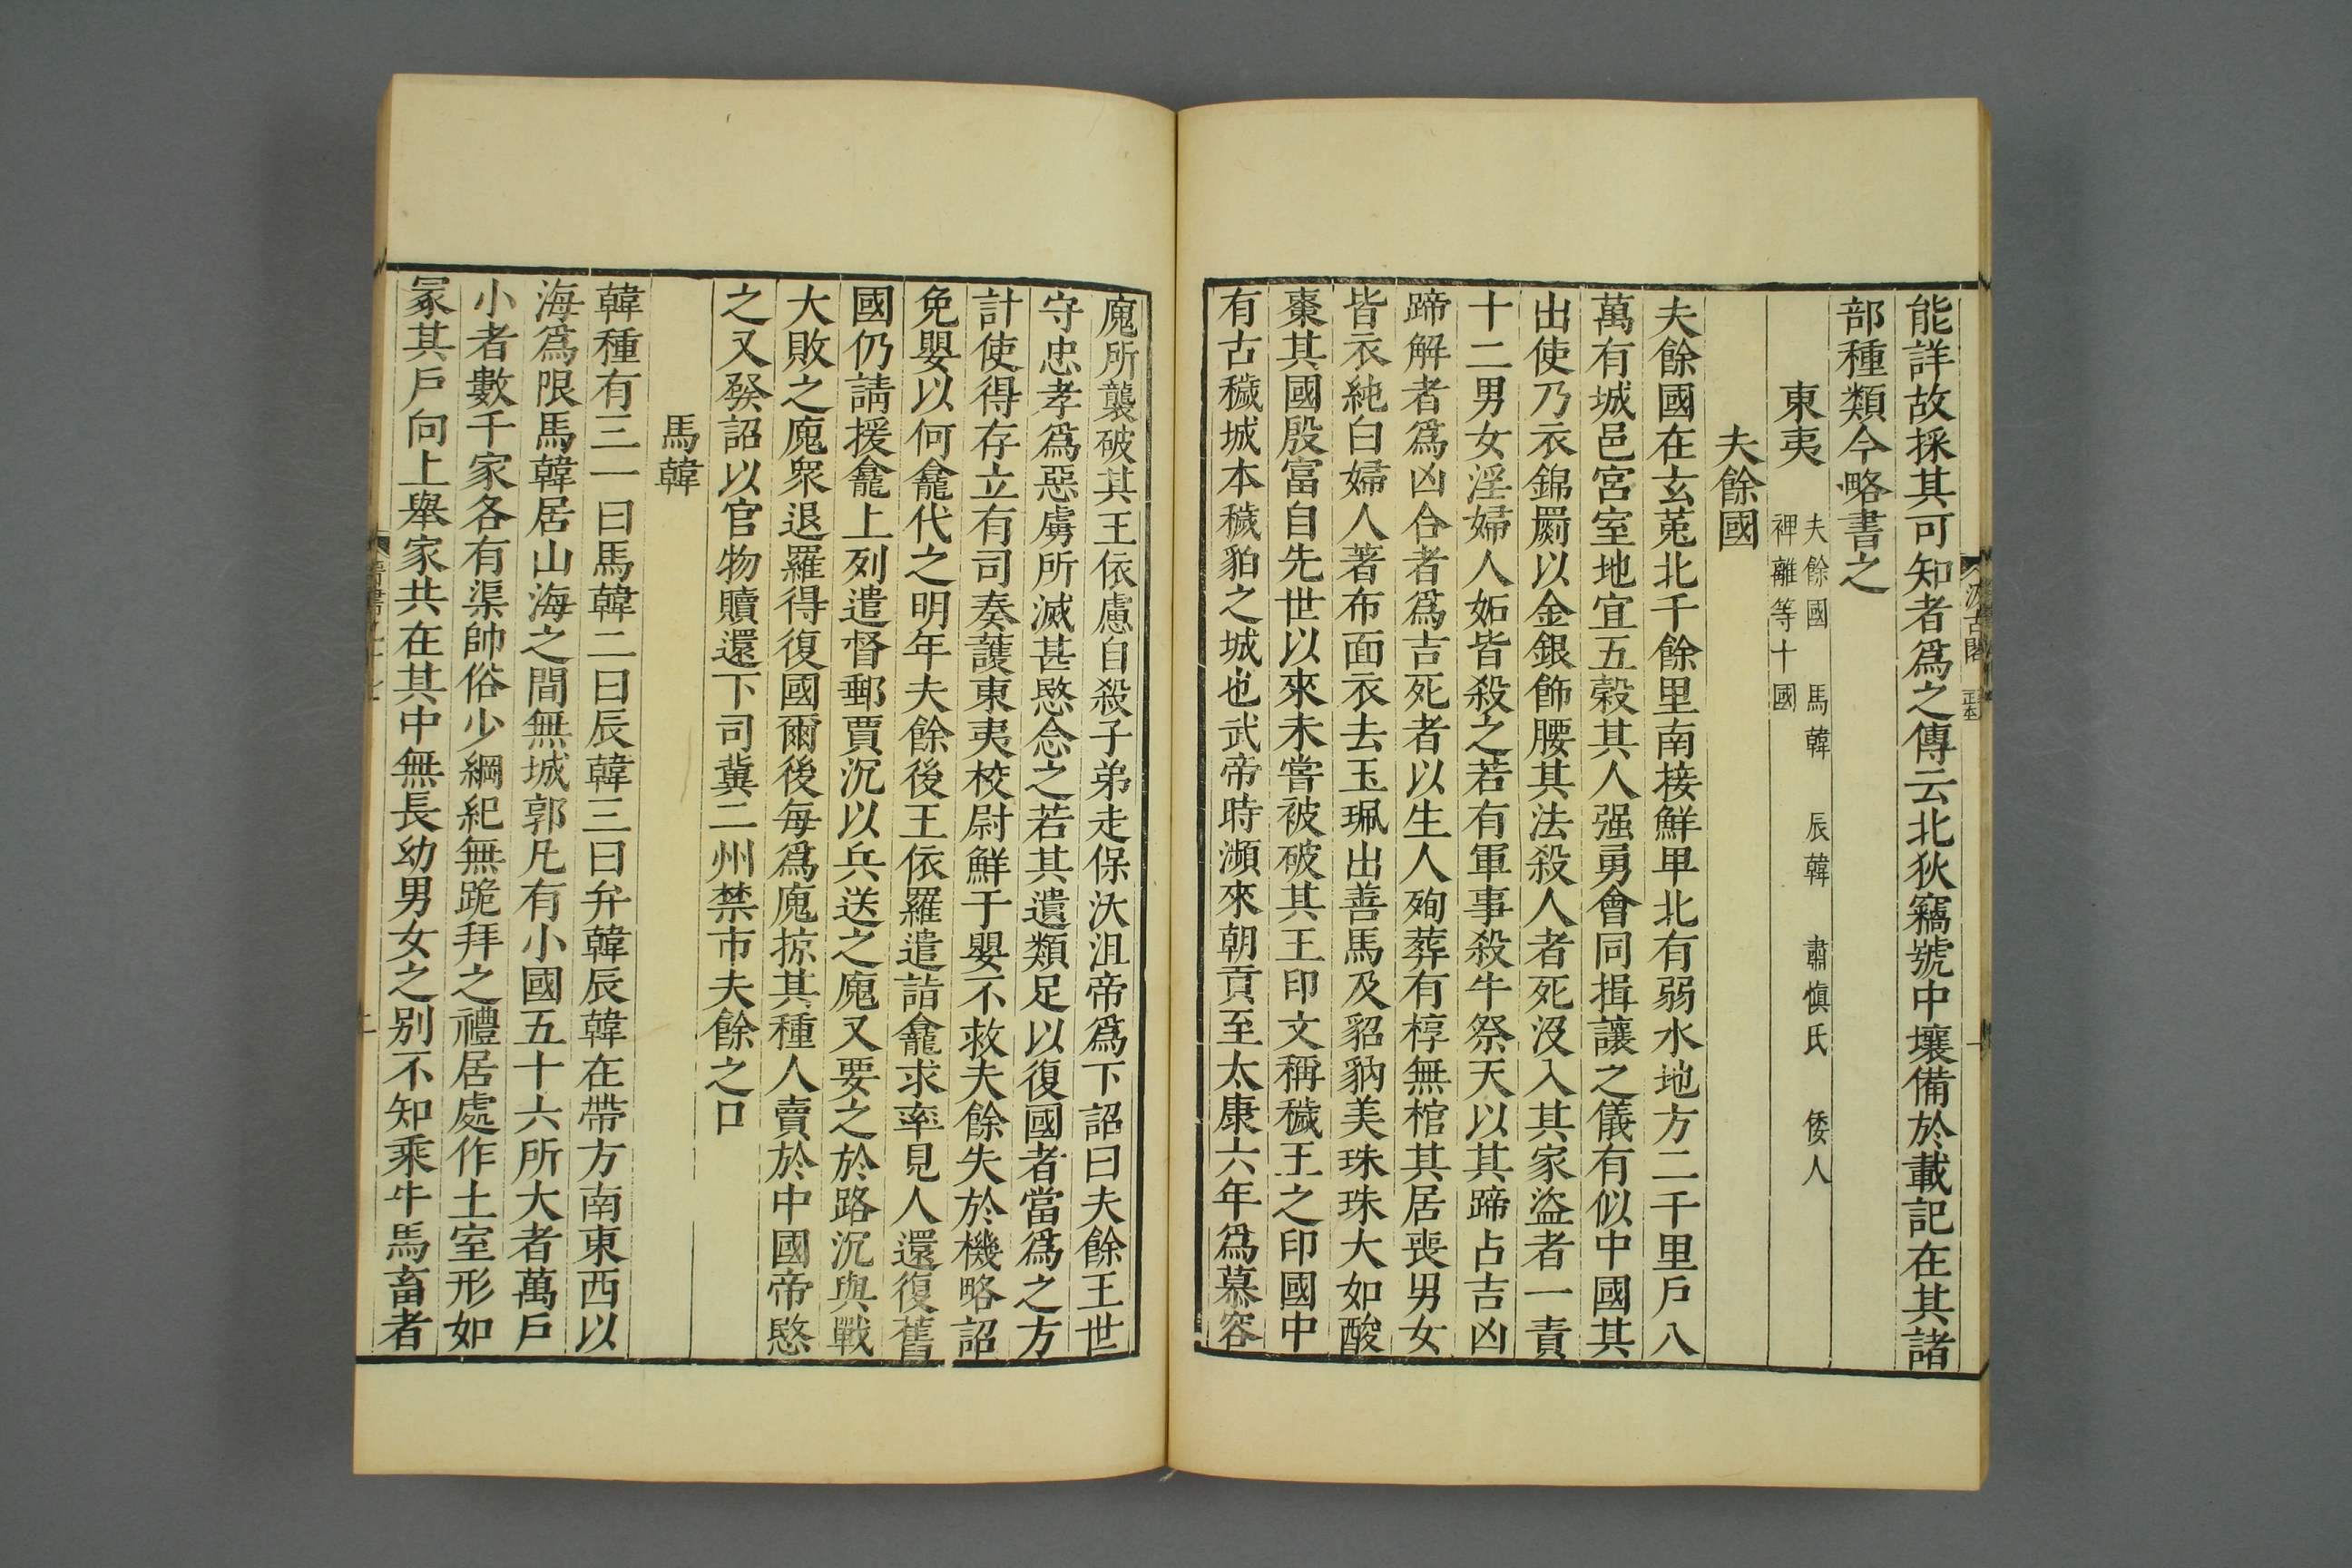 能詳故採其可知者爲之傳云北狄竊號中壤備於載記在其諸
部種類今略書之
東夷 夫餘國 馬韓 辰韓 肅愼氏 倭人
裨離等十國
夫餘國
夫餘國在玄菟北千餘里南接鮮卑北有弱水地方二千里戶八
萬有城邑宮室地宜五穀其人强勇會同揖讓之儀有似中國其
出使乃衣錦罽以金銀飾腰其法殺人者死沒入其家盜者一責
十二男女淫婦人妬皆殺之若有軍事殺牛祭天以其蹄占吉凶
蹄解者爲凶合者爲吉死者以生人殉葬有椁無棺其居喪男女
皆衣純白婦人著布面衣去玉珮出善馬及貂豽美珠珠大如酸
棗其國殷富自先世以來未嘗被破其王印文稱穢王之印國中
有古穢城本穢貊之城也武帝時頻來朝貢至太康六年爲慕容
廆所襲破其王依慮自殺子弟走保沃沮帝爲下詔曰夫餘王世
守忠孝爲惡虜所滅甚愍念之若其遺類足以復國者當爲之方
計使得存立有司奏護東夷校尉鮮于嬰不救夫餘失於機略詔
免嬰以何龕代之明年夫餘後王依羅遣詣龕求率見人還復舊
國仍請援龕上列遣督郵賈沉以兵送之廆又要之於路沉與戰
大敗之廆衆退羅得復國爾後每爲廆掠其種人賣於中國帝愍
之又發詔以官物贖還下司冀二州禁市夫餘之口
馬韓
韓種有三一曰馬韓二曰辰韓三曰弁韓辰韓在帶方南東西以
海爲限馬韓居山海之間無城郭凡有小國五十六所大者萬戶
小者數千家各有渠帥俗少綱紀無跪拜之禮居處作土室形如
冢其戶向上舉家共在其中無長幼男女之别不知乘牛馬畜者
汲古閣